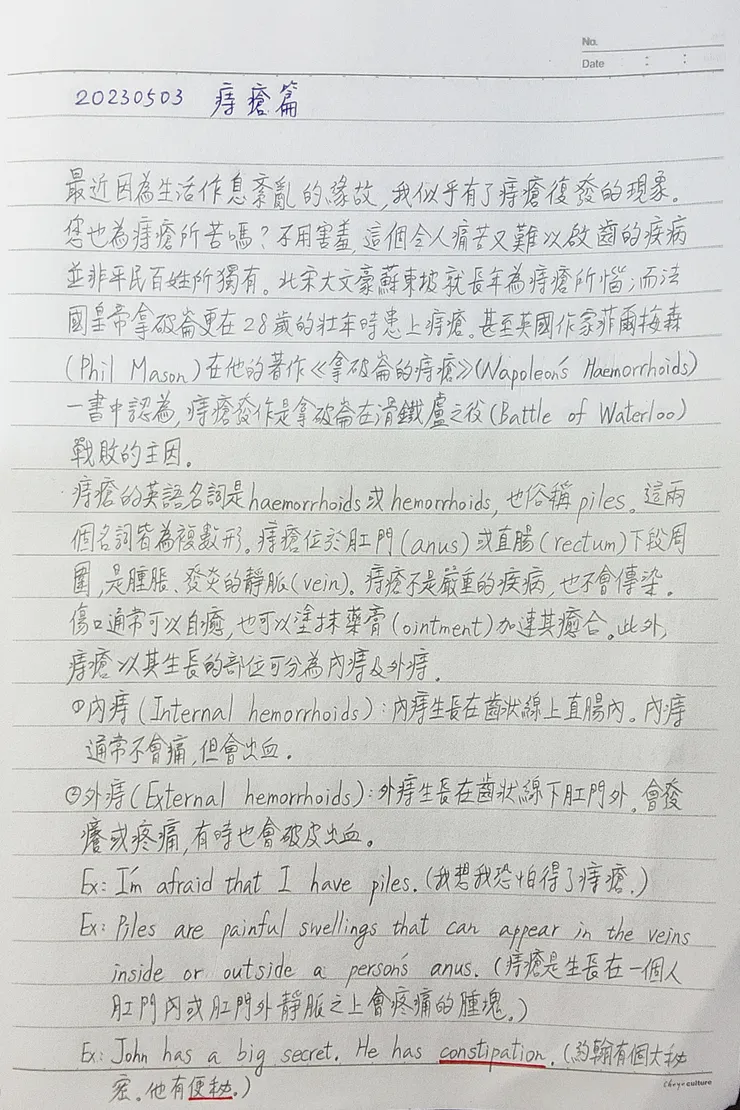 No.
Date : :
20230503 痔瘡篇
最近因為生活作息紊亂的緣故,我似乎有了痔瘡復發的現象。
您也為痔瘡所苦嗎?不用害羞,這個令人痛苦又難以啟齒的疾病
並非平民百姓所獨有。北宋大文豪蘇東坡就長年為痔瘡所惱;而法
國皇帝拿破崙更在28歲的壯年時患上痔瘡。甚至英國作家菲爾梅森
(Phil Mason)在他的著作《拿破崙的痔瘡》(Napoleon's Haemorrhoids)
一書中認為,痔瘡發作是拿破崙在滑鐵盧之役(Battle of Waterloo)
戰敗的主因。
痔瘡的英語名詞是haemorrhoids或hemorrhoids,也俗稱piles。這兩
個名詞皆為複數形。痔瘡位於肛門(anus)或直腸(rectum)下段周
圍,是腫脹、發炎的靜脈(vein)。痔瘡不是嚴重的疾病,也不會傳染。
傷口通常可以自癒,也可以塗抹藥膏(ointment)加速其癒合。此外,
痔瘡以其生長的部位可分為內痔及外痔。
①內痔(Internal hemorrhoids):內痔生長在齒狀線上直腸內。內痔
通常不會痛,但會出血。
②外痔(External hemorrhoids):外痔生長在齒狀線下肛門外。會發
癢或疼痛,有時也會破皮出血。
Ex: I'm afraid that I have piles.(我想我恐怕得了痔瘡。)
Ex: Piles are painful swellings that can appear in the veins
inside or outside a person's anus.(痔瘡是生長在一個人
肛門內或肛門外靜脈之上會疼痛的腫塊。)
Ex: John has a big secret. He has constipation.(約翰有個大秘
密。他有便秘。)
Chuyu culture